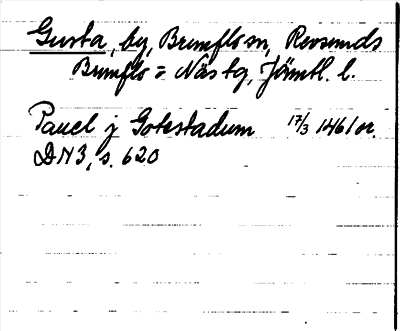 Gusta, by, Brunflo sn, Revsunds
Brunflo o Näs tg, Jämtl. l.
Pauel j Gotestadum 17/3 1461 or.
DN3, s. 620